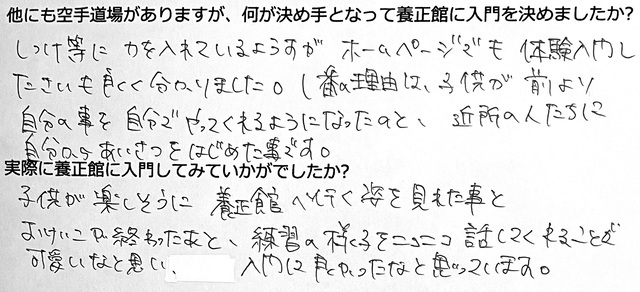 他にも空手道場がありますが、何が決め手となって養正館に入門を決めましたか?
しつけ等に力を入れているようすが ホームページでも 体験入門し
たさいも良くく分かりました。1番の理由は、子供が 前より
自分の事を自分でやってくれるようになったのと、近所の人たちに
自分からあいさつをはじめた事です。
実際に養正館に入門してみていかがでしたか?
子供が楽しそうに 養正館へ行く姿を見れた事と
おけいこが終わったあと、練習の様子をニコニコ話してくれることが
可愛いなと思い、 入門して良かったなと思っています。